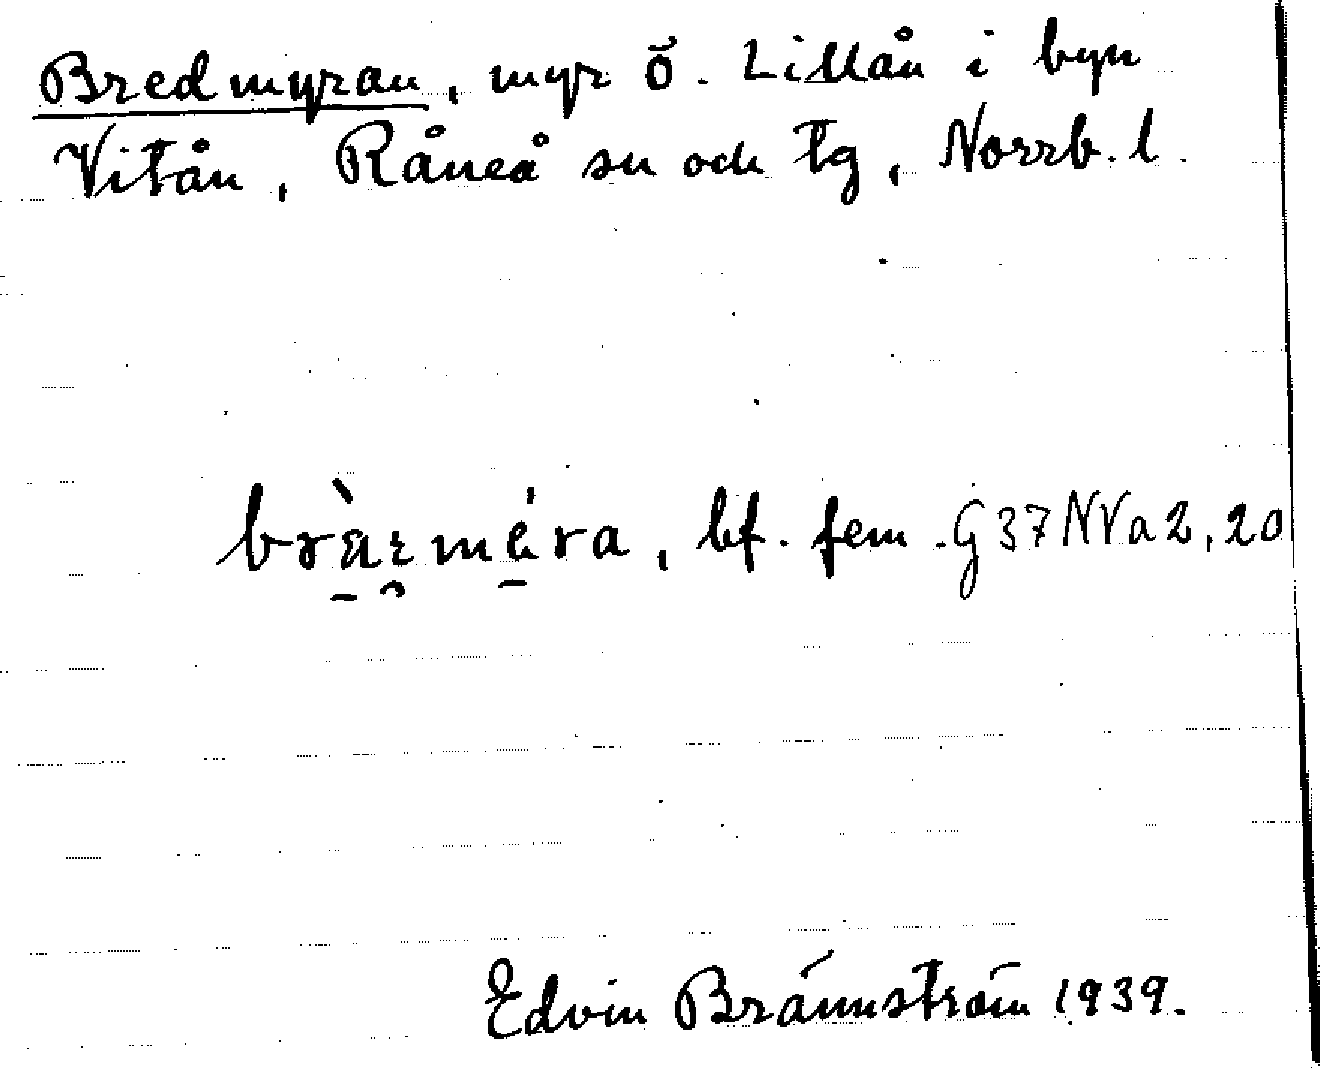 Bredmyran, myr ö. Lillån i byn
Vitån, Råneå sn och tg, Norrb. l.
bf. fem. G37NVa2,20
Edvin Brännström 1939.